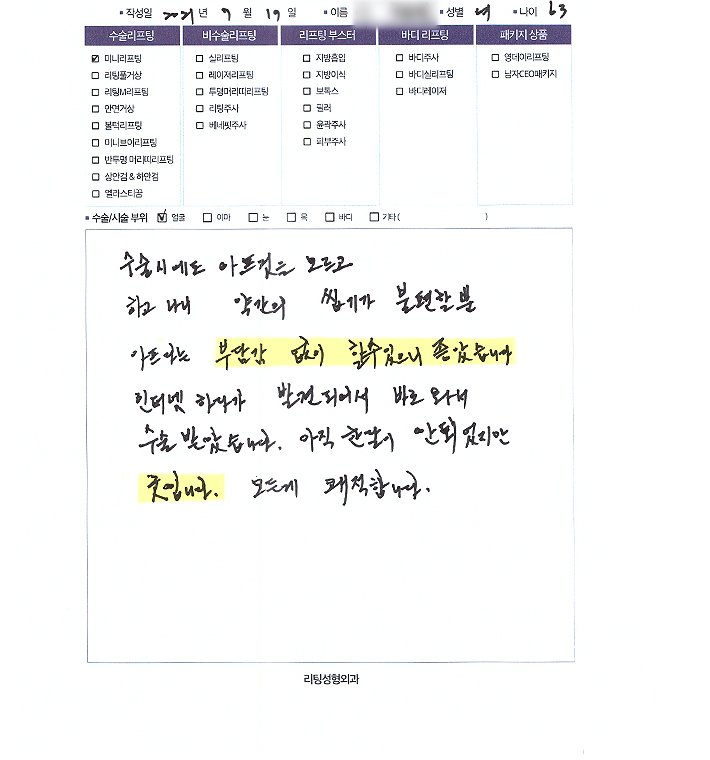 작성일 2021년 9월 19일 이름 성별 여 나이 63
수술리프팅 비수술리프팅 리프팅 부스터 바디 리프팅 패키지 상품
미니리프팅 실리프팅 지방흡입 바디주사 영데이리프팅
리팅풀거상 레이저리프팅 지방이식 바디실리프팅 남자CEO패키지
리팅M리프팅 투명머리띠리프팅 보톡스 바디레이저
안면거상 리팅주사 필러
볼턱리프팅 베네핏주사 윤곽주사
미니브이리프팅 피부주사
반투명 머리띠리프팅
상안검 & 하안검
엘라스티꿈
수술/시술 부위 얼굴 이마 눈 목 바디 기타( )
수술시에도 아프것은 모르고
하고 나니 약간의 씹기가 불편할뿐
아프다는 부담감 없이 할수있으니 좋았습니다
인터넷 하다가 발견되어서 바로 와서
수술 받았습니다. 아직 한달이 안되었지만
굿입니다. 모든게 쾌적합니다.
리팅성형외과